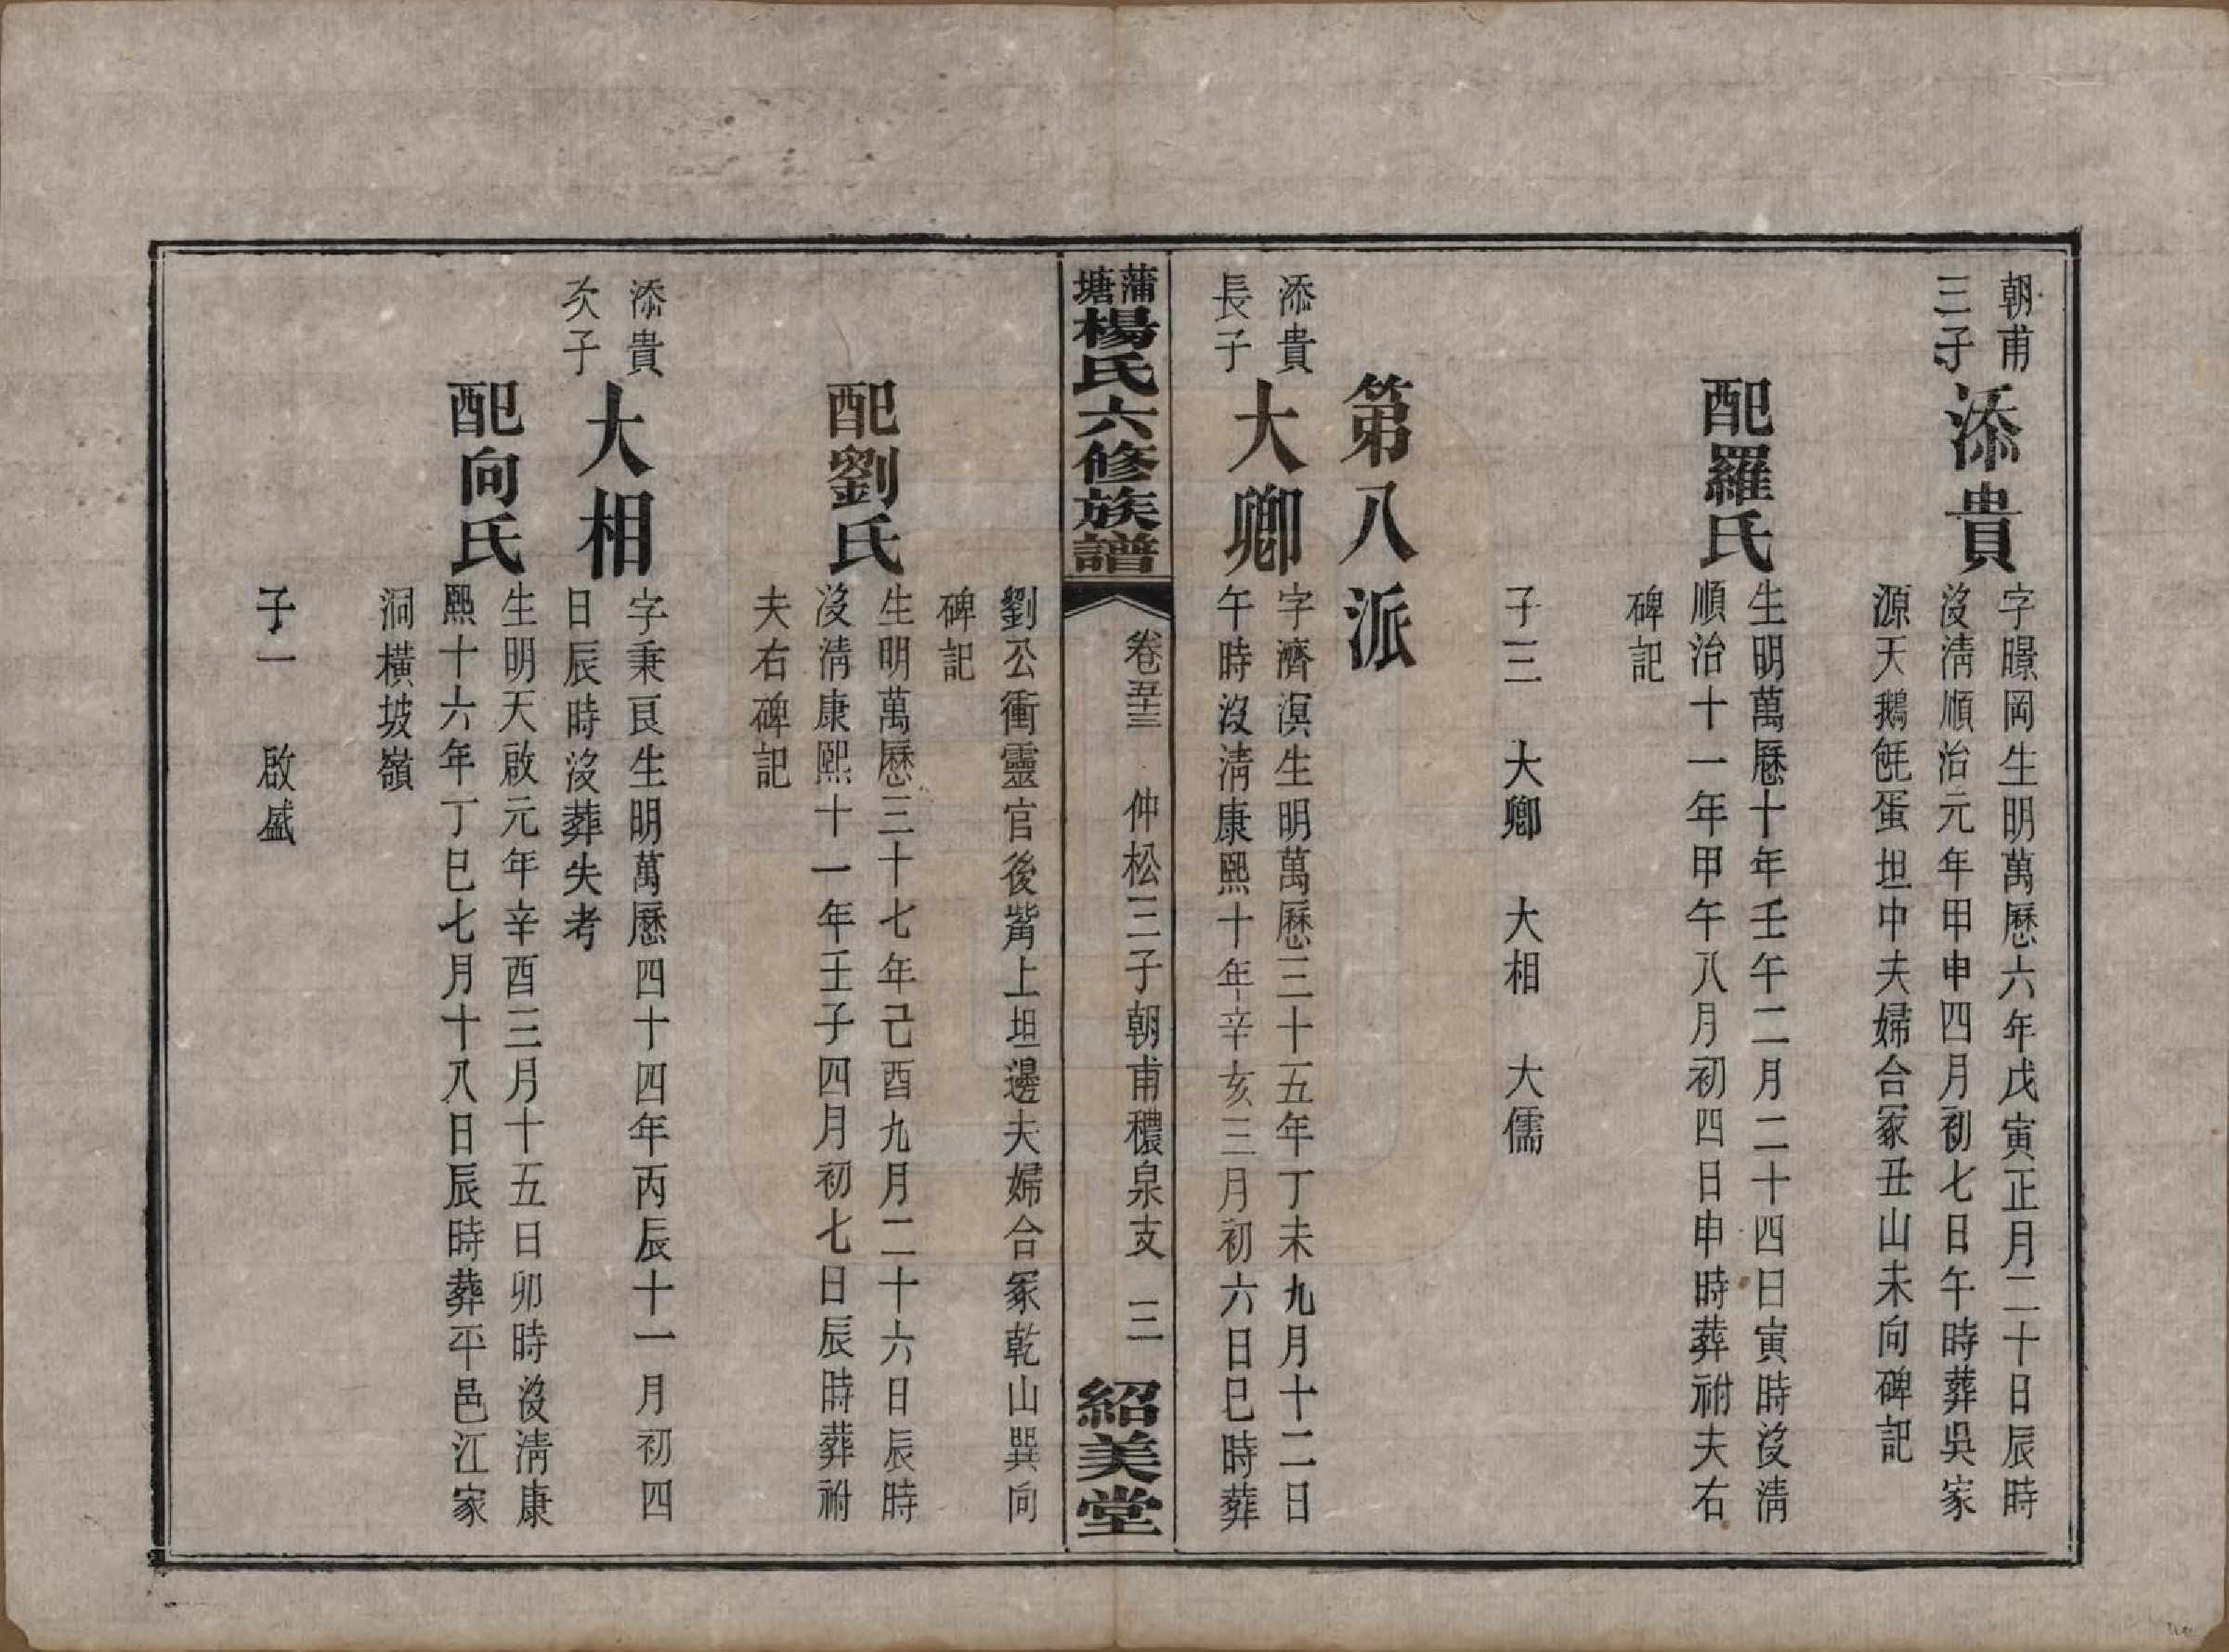 朝甫
三子
添貴
字暻岡生明萬曆六年戊寅正月二十日辰時
沒淸順治元年甲申四月初七日午時葬吳家
源天鵝毻蛋坦中夫婦合冢丑山未向碑記
配羅氏
生明萬曆十年壬午二月二十四日寅時沒淸
順治十一年甲午八月初四日申時葬祔夫右
碑記
子三 大卿 大相 大儒
第八派
添貴
長子
大卿
字濟溟生明萬曆三十五年丁未九月十二日
午時沒淸康熙十年辛亥三月初六日巳時葬
蒲塘楊氏六修族譜 卷五十三 仲松三子朝甫穠泉支 三 紹美堂
劉公衝靈官後嘴上坦邊夫婦合冢乾山巽向
碑記
配劉氏
生明萬曆三十七年己酉九月二十六日辰時
沒淸康熙十一年壬子四月初七日辰時葬祔
夫右碑記
添貴
次子
大相
字秉良生明萬曆四十四年丙辰十一月初四
日辰時沒葬失考
配向氏
生明天啟元年辛酉三月十五日卯時沒淸康
熙十六年丁巳七月十八日辰時葬平邑江家
洞橫坡嶺
子一 啟盛